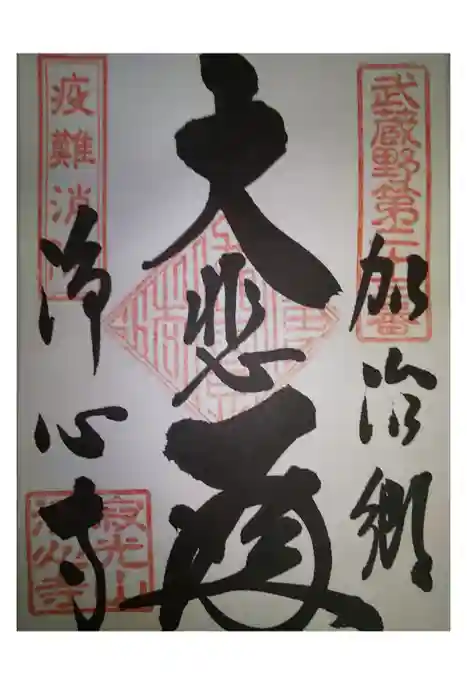 武蔵野第二十 番
加治郷
大悲殿
疫難消
浄心寺
寂光山
浄心寺